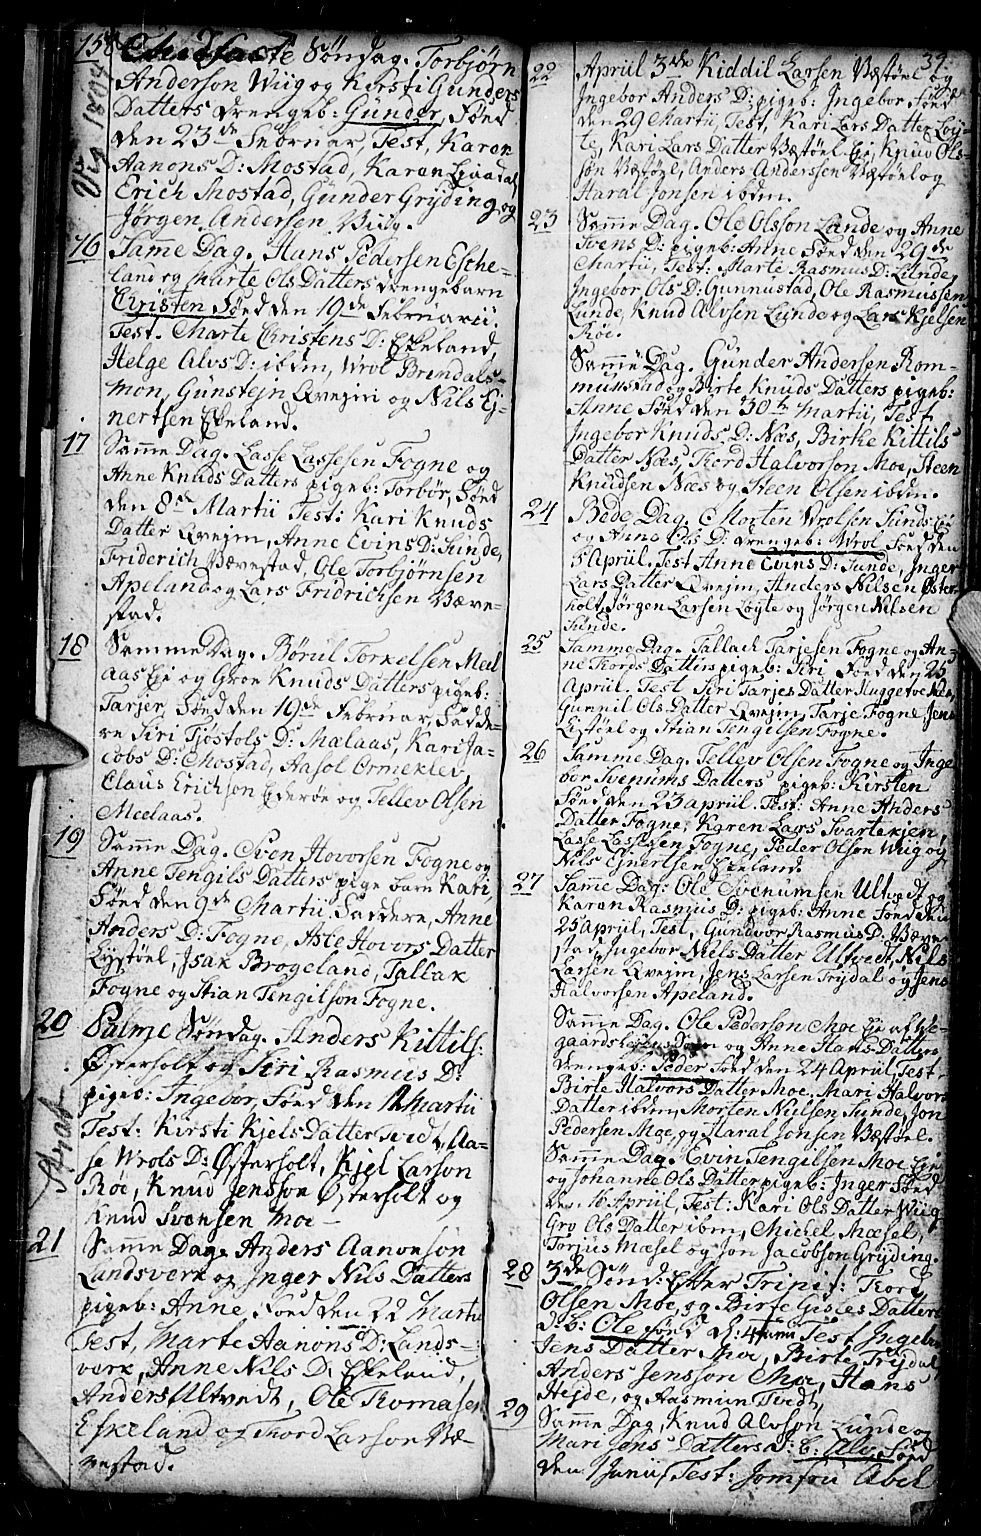 158
Søndag. Torbjørn
Anderson Wiig og Kirsti Gunders
Datters Drengeb: Gunder, Føed
den 23de Februar, Test, Karen
Aanons D: Mostad, Karen
Erich Mostad, Gunder Gryding og
Jørgen Andersen Wiig.
16
Same Dag. Hans Pedersen Esche-
land og Marte Ols Datters Drengebarn
Christen Føed den 19de Februarii.
Test. Marte Christens D: Ekeland,
Helge Alvs D: ibdm, Wrol Brendals-
mon, Gunstejn Qvejm og Nils Ej-
nertsen Ekeland.
17
Samme Dag. Lasse Lassesen Fogne og
Anne Knuds Datters pigeb: Torbør, Føed
den 8de Martii Test: Kari Knuds
Datter Qvejm, Anne Evins D: Sunde,
Friderich Bævestad, Ole Torbjørnsen
Apeland og Lars Fridrichsen Bæve-
stad.
18
Samme Dag. Børul Torkelsen Meel
aas Eje og Groe Knuds Datters pigeb:
Tarjer, Føed den 19de Februar, Fadde-
re Siri Tjostols D: Mælaas, Kari Ja-
cobs D: Mostad, Aasol Ormeklev,
Claus Erichson Ederøe og Tellev Olsen
Meelaas.
19
Samme Dag. Sven Hovorsen Fogne og
Anne Tengils Datters pige barn Kari,
Føed den 9de Martii. Faddere, Anne
Anders D: Fogne, Asle Hovors Datter
Lystøel, Isak Brogeland, Tallak
Fogne og Stian Tengilson Fogne.
20
Palme Søndag. Anders Kittils:
Østerholt og Siri Rasmus D:
pigeb: Ingebor, Føed den 12 Martii
Test: Kirsti Kjels Datter Tvedt, Aa-
se Wrols D: Østerholt, Kjel Larson
Roe, Knud Jensson Østerholt og
Knud Svensen Moe
21
Samme Dag. Anders Aanonson
Landsverk og Inger Nils Datters
pigeb: Anne, Føed den 22 Martii
Test, Marte Aanons D: Lands-
værk, Anne Nils D: Ekeland,
Anders Ultvedt, Ole Tomasen
Eskeland og Tord Larson Bæ-
vestad.
39.
22
Apriil 3de Kiddil Larsen Bæstøel og
Ingebor Anders D: pigeb: Ingebor Føed
den 29 Martii, Test, Kari Lars Datter Løy-
te, Kari Lars Datter Bæstøel Eje, Knud Ols-
søn Bæstøel, Anders Anderssen Bæstøel og
Haral Jonsen ibdm.
23
Samme Dag. Ole Olsson Lunde og Anne
Svens D: pigeb: Anne Føed den 29de
Martii, Test: Marte Rasmus D: Lunde,
Ingebor Ols D: Gunnustad, Ole Rasmussen
Lunde, Knud Alvsen Lunde og Lars Kjelsen
Roe.
Samme Dag. Gunder Andersen Rom-
munstad og Birte Knuds Datters pigeb:
Anne Føed den 30te Martii, Test
Ingebor Knuds D: Næs, Birte Kittils
Datter Næs, Tord Halvorson Moe, Steen
Knudsen Næs og Steen Olsen ibdm.
24
Bede Dag. Morten Wrolsen Sunds Eje
og Anne Ols D: Drengeb: Wrol Føed den
5 Apriil, Test Anne Evins D: Sunde, Inger
Lars Datter Qvejm, Anders Nilsen Øster-
holt, Jørgen Larsen Løyte og Jørgen Nilsen
Sunde.
25
Samme Dag. Tallach Tarjesen Fogne og An-
ne Tords Datters pigeb: Siri Føed den 25
Apriil. Test Siri Tarjes Datter
Gunnil Ols Datter Qvejm, Tarje Fogne, Jens
Listøel og Stian Tengilsen Fogne.
26
Samme Dag. Tellev Olsen Fogne og Inge
bor Svenums Datters pigeb: Kirsten
Føed den 23 april. Test: Anne Anders
Datter Fogne, Karen Lars Svartekjen,
Lasse Lassesen Fogne, Peder Olson Wiig og
Nils Ejnertsen Ekeland.
27
Samme Dag: Ole Svenumsen Ultvedt og
Karen Rasmus D: pigeb: Anne Føed den
25 Apriil, Test, Gundvor Rasmus D: Bæve
stad, Ingebor Niels Datter Ultvedt, Nils
Larsen Qvejm, Jens Larsen Trydal og Jens
Halvorsen Apeland.
Samme Dag. Ole Pederson Moe Eje af
gaards og Anne Hans Datters
Drengeb: Peder Føed den 24 Apriil, Test
Birte Halvors Datter Moe, Mari Halvors
Datter ibdem, Morten Nielsen Sunde, Jon
Pedersen Moe, og Haral Jonsen Bæstøel.
Samme Dag. Evin Tengilsen Moe Eje
og Johanne Ols Datter pigeb: Inger Føed
den 16 Apriil, Test: Kari Ols Datter Wiig
Gro Ols Datter ibm, Michel Mæsel,
Torjus Mæsel og Jon Jacobson Gryding.
28
3de Sønd: Efter Trinit: Tord
Olsen Moe, og Birte Gisles Datters
D: b: Ole føed d: 4 Test Ingebor
Jens Datter Moe, Birte Trydal
Anders Jensson Moe, Hans
Hejde, og Aasmun Tvedt,
29
Samme Dag, Knud Alvson Lunde og
Mari Jons Datters d: b: Alv Føed
den 1 Junii, Test: Jomfru Abel